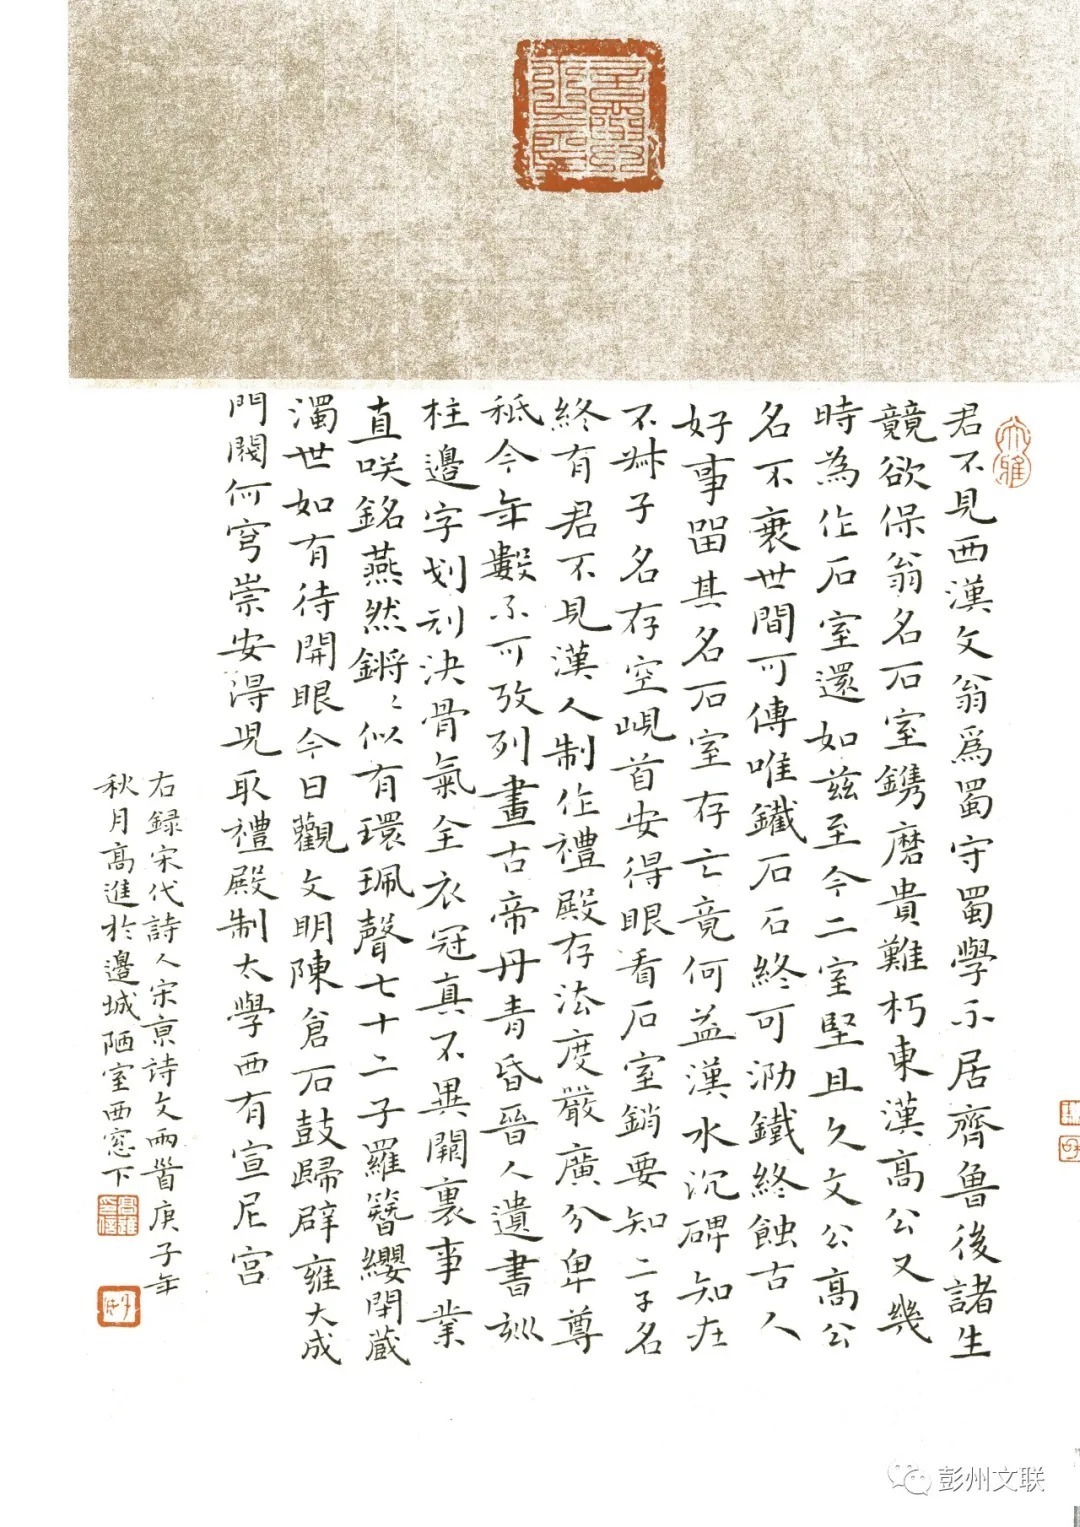 君不見西漢文翁爲蜀守蜀學不居齊魯後諸生
競欲保翁名石室鐫磨貴難朽東漢高公又幾
時為作石室還如茲至今二室堅且久文公高公
名不衰世間可傳唯鐵石石終可泐鐵終蝕古人
好事留其名石室存亡竟何益漢水沉碑知在
不叔子名存空峴首安得眼看石室銷要知二子名
終有君不見漢人制作禮殿存法度嚴廣分卑尊
秪今年數不可攷列畫古帝丹青昏晉人遺書訓
柱邊字划刓決骨氣全衣冠真不異闕裏事業
直咲銘燕然鏘〻似有環珮聲七十二子羅簪纓閉藏
濁世如有待開眼今日觀文明陳倉石鼓歸辟雍大成
門闕何穹崇安得見取禮殿制太學西有宣尼宮
右録宋代詩人宋京詩文兩首庚子年
秋月高進於邊城陋室西窓下
大雅
彭州文联